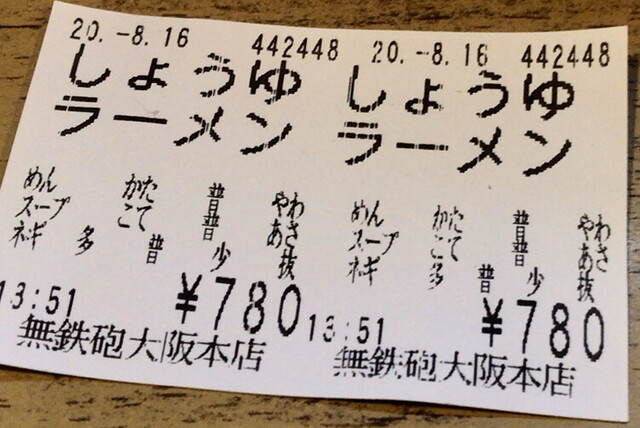 20.-8.16 442448
しょうゆ
ラーメン
めん かた 普 やわ
スープ こて 普 あさ
ネギ 多 普 少 抜
13:51 ¥780
無鉄砲大阪本店
20.-8.16 442448
しょうゆ
ラーメン
めん かた 普 やわ
スープ こて 普 あさ
ネギ 多 普 少 抜
13:51 ¥780
無鉄砲大阪本店